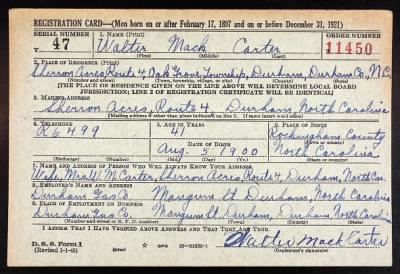 REGISTRATION CARD—(Men born on or after February 17, 1897 and on or before December 31, 1921)
SERIAL NUMBER 1. NAME (Print) ORDER NUMBER
47 Walter Mack Carter 11450
(First) (Middle) (Last)
2. PLACE OF RESIDENCE (Print)
Sherron Acres, Route 4, Oak Grove Township, Durham, Durham Co., N.C.
(Number and street) (Town, township, village, or city) (County) (State)
[THE PLACE OF RESIDENCE GIVEN ON THE LINE ABOVE WILL DETERMINE LOCAL BOARD
JURISDICTION; LINE 2 OF REGISTRATION CERTIFICATE WILL BE IDENTICAL]
3. MAILING ADDRESS
Sherron Acres, Route 4, Durham, North Carolina
[Mailing address if other than place indicated on line 2. If same insert word same]
4. TELEPHONE 5. AGE IN YEARS 6. PLACE OF BIRTH
R6499 41 Rockingham County
DATE OF BIRTH (Town or county)
Aug. 5 1900 North Carolina
(Exchange) (Number) (Mo.) (Day) (Yr.) (State or country)
7. NAME AND ADDRESS OF PERSON WHO WILL ALWAYS KNOW YOUR ADDRESS
Wife, Mrs. W. M. Carter, Sherron Acres, Route 4, Durham, North Car.
8. EMPLOYER'S NAME AND ADDRESS
Durham Gas Co. Mangum St. Durham, North Carolina
9. PLACE OF EMPLOYMENT OR BUSINESS
Durham Gas Co. Mangum St. Durham, Durham, North Carolina
(Number and street or R. F. D. number) (Town) (County) (State)
I AFFIRM THAT I HAVE VERIFIED ABOVE ANSWERS AND THAT THEY ARE TRUE.
D. S. S. Form 1
(Revised 1-1-42) GPO 16—21630-1 Walter Mack Carter
(Registrant's signature)